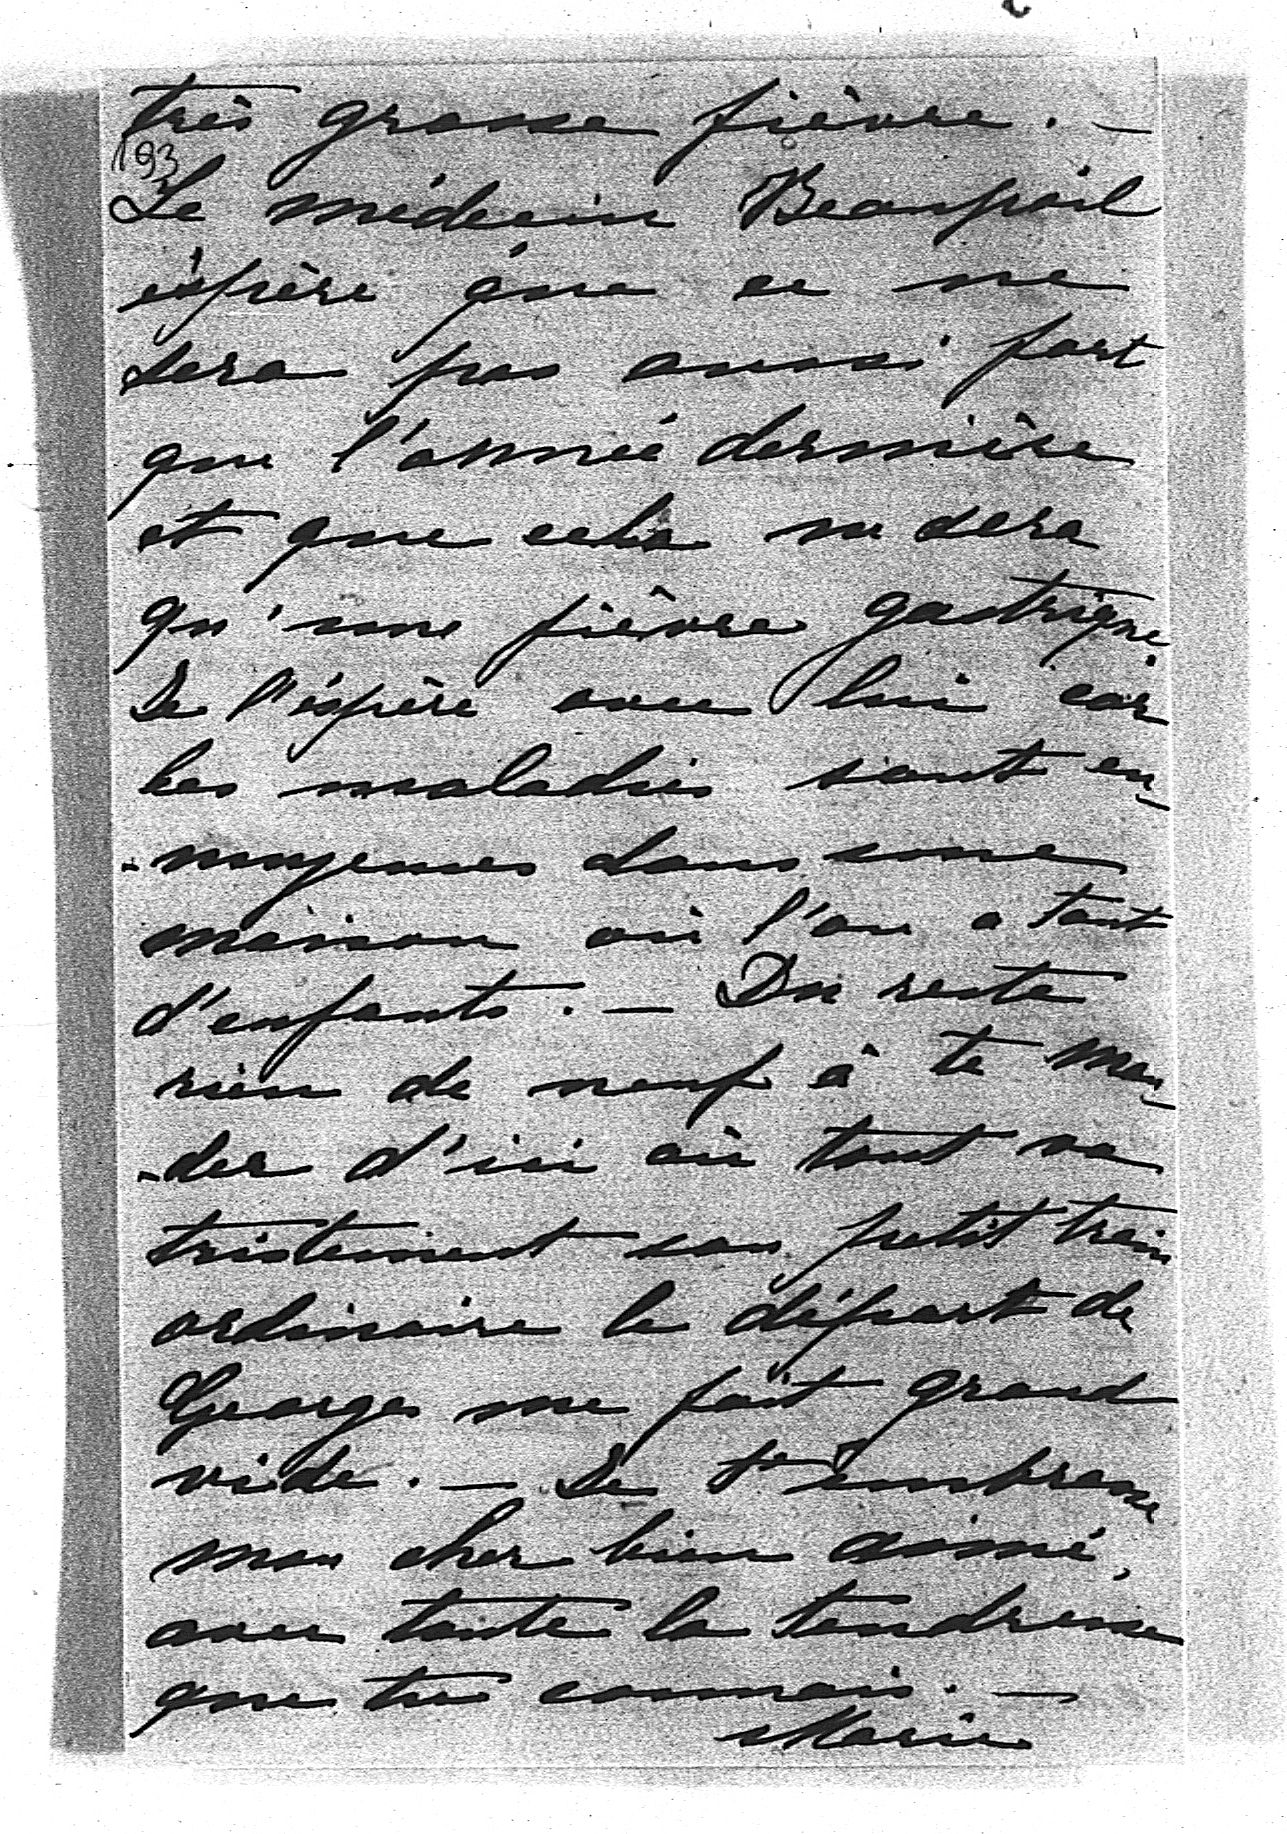 très grosse fièvre. —
193
Le médecin Beaupoil
éspère que ce ne
sera pas aussi fort
que l'année dernière
et que cela ne sera
qu'une fièvre gastrique.
Je l'éspère avec lui car
les maladies sont en-
-nuyeuses dans une
maison où l'on a tant
d'enfants. — Du reste
rien de neuf à te man-
-der d'ici où tout va
tristement son petit train
ordinaire le départ de
Georges me fait grand
vide. — Je t'embrasse
mon cher bien aimé,
avec toute la tendresse
que tu connais. —
Marie